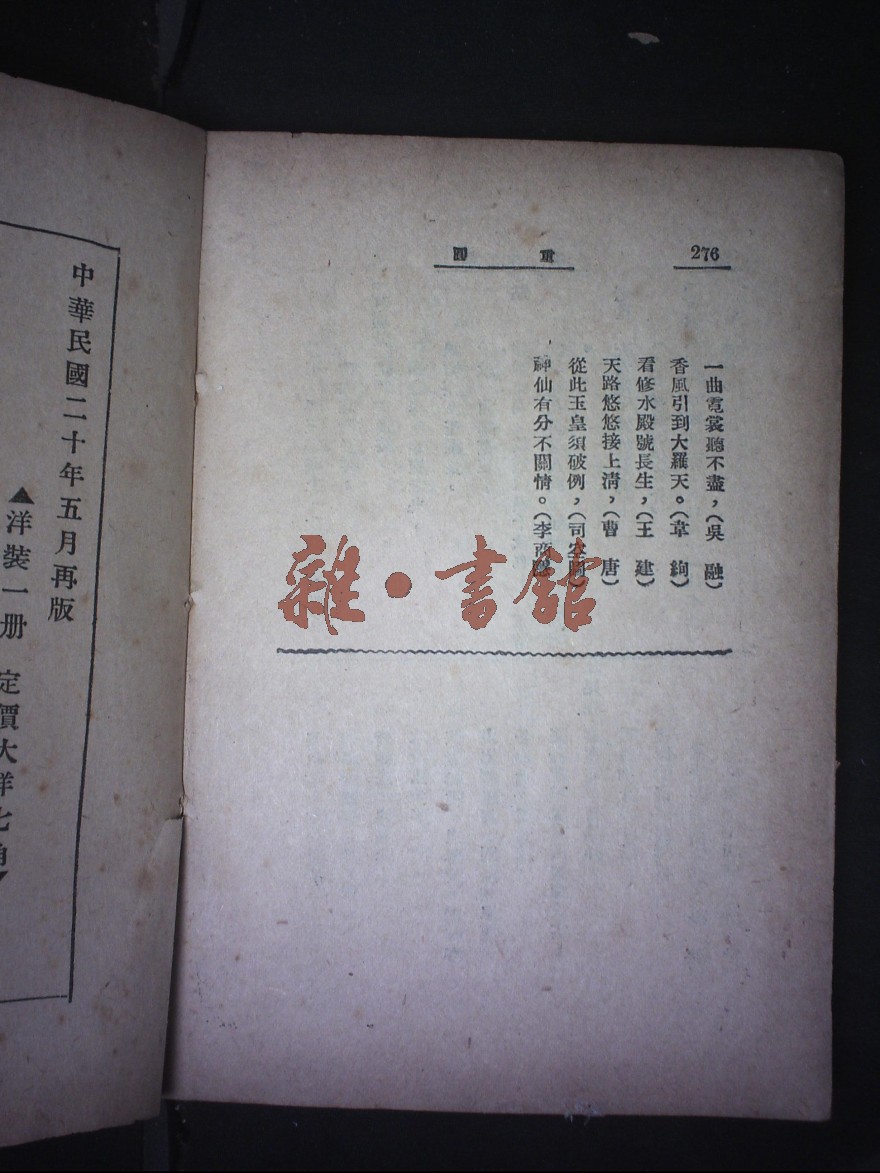 276
重圓
一曲霓裳聽不盡，（吳　融）
香風引到大羅天。（韋　絢）
看修水殿號長生，（王　建）
天路悠悠接上清，（曹　唐）
從此玉皇須破例，（司空圖）
神仙有分不關情。（李商隱）
雜·書館
中華民國二十年五月再版
▲洋裝一册　定價大洋七角▼